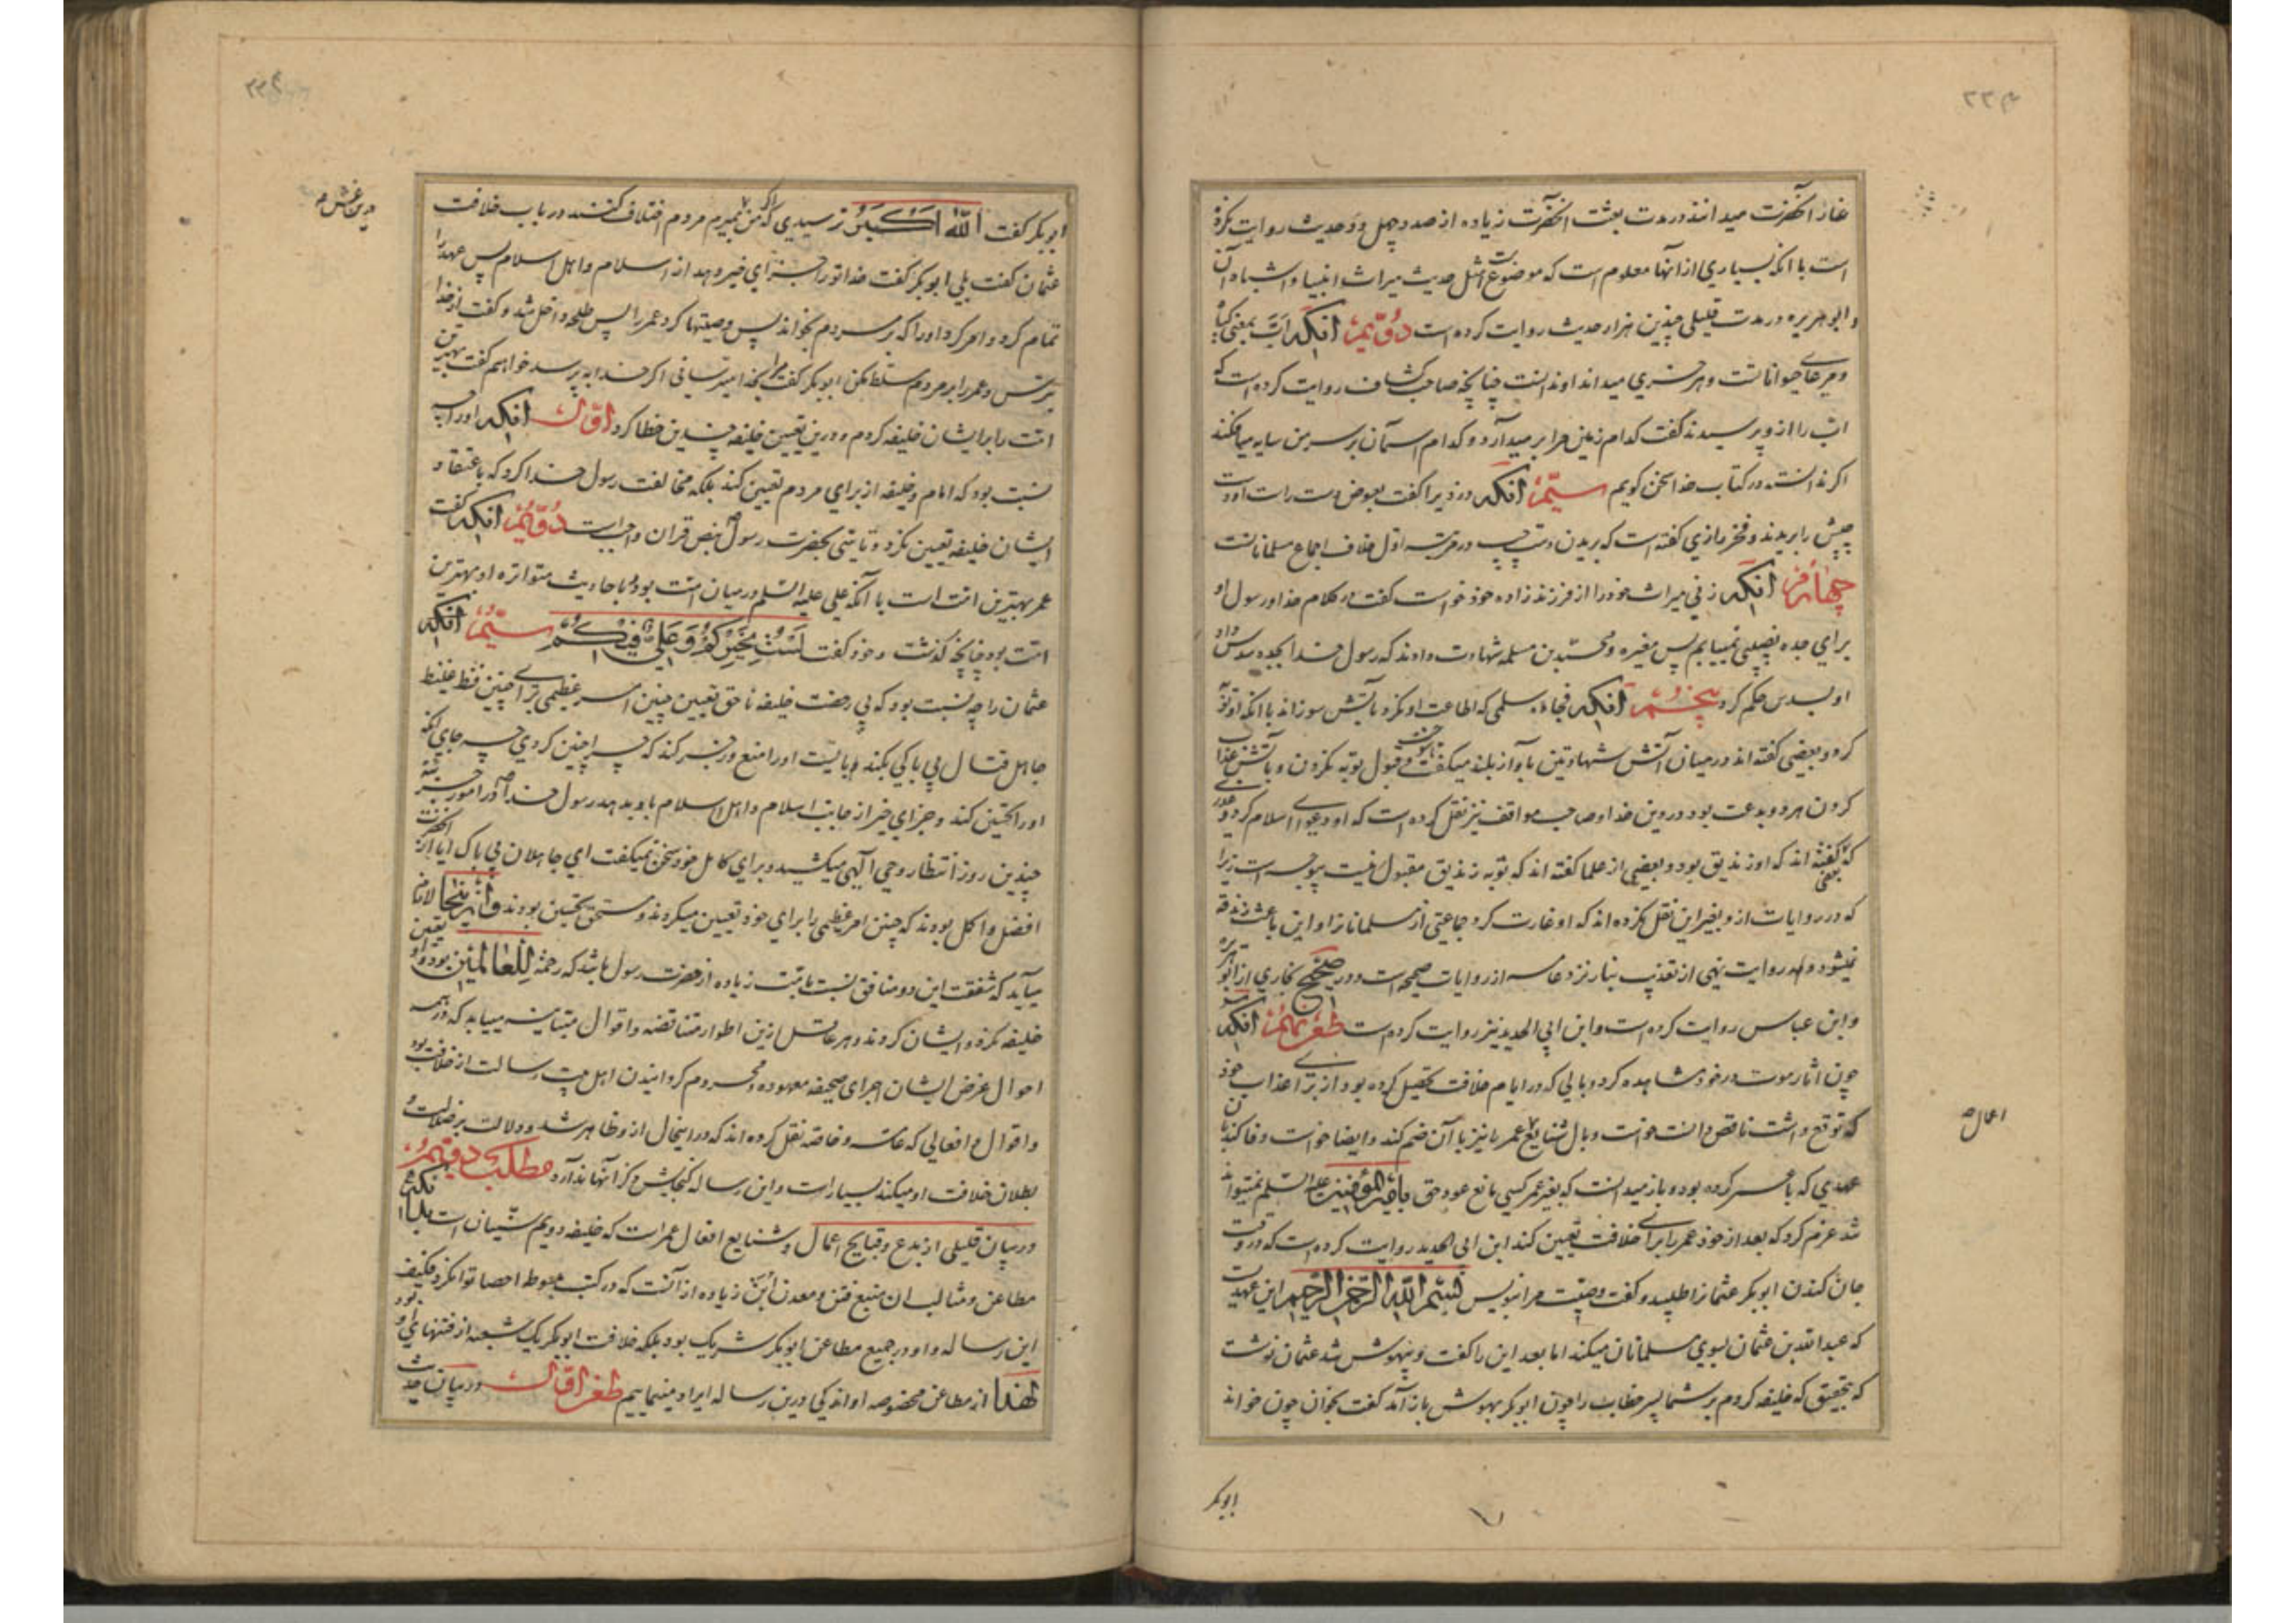 ۲۲۴
غار آنحضرت میدانند در مدت بعثت آنحضرت زیاده از صد و چهل و دو حدیث روایت نکرده
است با آنکه بسیاری از آنها معلوم است که موضوعست مثل حدیث میراث انبیا و اشباه آن
و ابوهریره در مدت قلیلی چندین هزار حدیث روایت کرده است دُوّیمْ انکه اَبّ بمعنی گیاه
و مرعای حیوانات است و هر می داند او ندانست چنانچه صاحب کشاف روایت کرده است که
اب را از و پرسیدند گفت کدام زمین مرا بر میدارد و کدام آسمان بر سر من سایه میافکند
اگر ندانسته در کتاب خدا سخن گویم سیّمْ انکه دزدیرا گفت بعوض دست راست او دست
چپش را بریدند و فخر رازی گفته است که بریدن دست چپ در مرتبه اول خلاف اجماع مسلمانانست
چهارم انکه زنی میراث خود را از فرزند زاده خود خواست گفت در کلام خدا و رسول او
برای جده نصیبی نمییابم پس مغیره و محمد بن مسلمه شهادت دادند که رسول خدا بجده سدس داد
او بسدس حکم کرد پنجم انکه فجاءه سلمی که اطاعت او نکرد بآتش سوزاند با انکه او توبه
کرد و بعضی گفته اند در میان آتش شهادتین بآواز بلند میگفت تا سوخت و قبول توبه نکردن و بآتش عذاب
کردن هر دو بدعت بود در دین خدا و صاحب مواقف نیز نقل کرده است که او دعوای اسلام میکرد و عذری
که بعضی گفته اند که او زندیق بود و بعضی از علما گفته اند که توبه زندیق مقبول نیست بیوجه است زیرا
که در روایات از و بغیر این نقل نکرده اند که او غارت کرد جماعتی از مسلمانانرا و این باعث زندقه
نمیشود و ایضا روایت نهی از تعذیب بنار نزد عامه از روایات صحیحه است و در صحیح بخاری از ابوهریره
و ابن عباس روایت کرده است و ابن ابی الحدید نیز روایت کرده است طعن نهم انکه
چون آثار موت در خود مشاهده کرد و بالی که در ایام خلافت تحصیل کرده بود از برای عذاب خود
که توقع داشت ناقص دانست خواست وبال شنایع عمر را نیز با آن ضم کند و ایضا خواست وفا کند بآن
عهدی که با عمر کرده بود و باز میدانست که بغیر عمر کسی مانع عود حق بامیرالمؤمنین علیه السلم نمیتواند
شد عزم کرد که بعد از خود عمر را برای خلافت تعیین کند ابن ابی الحدید روایت کرده است که در وقت
جان کندن ابوبکر عثمانرا طلبید و گفت وصیت مرا بنویس بسم الله الرحمن الرحیم این عهدیست
که عبدالله بن عثمان بسوی مسلمانان میکند اما بعد این را گفت و بیهوش شد عثمان نوشت
که بتحقیق که خلیفه کردم بر شما پسر خطاب را چون ابوبکر بهوش باز آمد گفت بخوان چون خواند
اعمال
ابوبکر
ابوبکر گفت اللّٰه اکبر ترسیدی که اگر من بمیرم مردم اختلاف کنند در باب خلافت
عثمان گفت بلی ابوبکر گفت خدا تو را جزای خیر دهد از اسلام و اهل اسلام پس عهد را
تمام کرد و امر کرد او را که بر سر مردم بخواند پس وصیتها کرد عمر را پس طلحه داخل شد و گفت از خدا
بترس و عمر را بر مردم مسلط مکن ابوبکر گفت مرا بخدا میترسانی اگر خدا بپرسد خواهم گفت بهترین
امت را بر ایشان خلیفه کردم و درین تعیین خلیفه چندین خطا کرد اوّل انکه او را چه
نسبت بود که امام و خلیفه از برای مردم تعیین کند بلکه مخالفت رسول خدا کرد که باعتقاد
ایشان خلیفه تعیین نکرد و تاسی بحضرت رسول بنص قران واجبست دوّیم انکه گفت
عمر بهترین امت است با آنکه علی علیه السلم در میان امت بود و باحادیث متواتره او بهترین
امت بود چنانچه گذشت و خود گفت لَسْتُ بِخَیْرِکُمْ وَ عَلِیٌّ فِیْکُمْ سیّمْ انکه
عثمان را چه نسبت بود که بی رخصت خلیفه ناحق تعیین چنین امر عظیمی برای چنین فظ غلیظ
جاهل قتال بی باکی بکند و بایست او را منع و زجر کند که چرا چنین کردی چه جای انکه
او را تحسین کند و جزای خیر از جانب اسلام و اهل اسلام باو بدهد رسول خدا در امور جزئیه
چندین روز انتظار وحی الهی میکشید و برای کامل خود سخن نمیگفت ای جاهلان بی باک آیا از آنحضرت
افضل و اکمل بودند که چنین امر عظیمی را برای خود تعیین میکردند و مستحق تحسین بودند و از اینجا لازم
میآید که شفقت این دو منافق نسبت بامت زیاده از حضرت رسول باشد که رحمة للعالمین بود و او تعیین
خلیفه نکرد و ایشان کردند و هر عاقل ازین اطوار متناقضه و اقوال متباینه مییابد که در همه
احوال غرض ایشان اجرای صحیفه معهوده و محروم گردانیدن اهل بیت رسالت از خلافت بود
و اقوال و افعالی که عامه و خاصه نقل کرده اند که در اینحال ازو ظاهر شد و دلالت بر ضلالت و
بطلان خلافت او میکند بسیار است و این رساله گنجایش ذکر آنها ندارد مطلب دوّیم
در بیان قلیلی از بدع و قبایح اعمال و شنایع افعال عمر است که خلیفه دویم سنیان است بدانکه
مطاعن و مثالب ان منبع فتن و معدن زیاده از آنست که در کتب مبسوطه احصا توان کرد فکیف
این رساله و او در جمیع مطاعن ابوبکر شریک بود بلکه خلافت ابوبکر یک شعبه از فتنهای او بود
لهذا از مطاعن مخصوصه او اندکی درین رساله ایراد مینماییم طعن اوّل در بیان حدیث